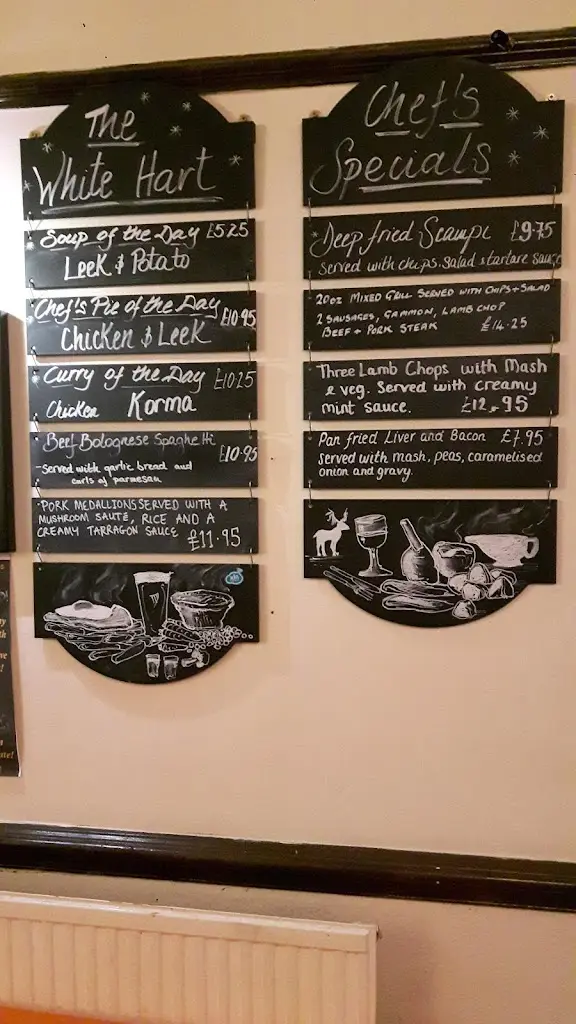 The
White Hart
Soup of the Day £5.25
Leek & Potato
Chef's Pie of the Day £10.95
Chicken & Leek
Curry of the Day £10.25
Chicken Korma
Beef Bolognese Spaghetti £10.95
-Served with garlic bread and
curls of parmesan
PORK MEDALLIONS SERVED WITH A
MUSHROOM SAUTÉ, RICE AND A
CREAMY TARRAGON SAUCE £11.95
Chef's
Specials
Deep fried Scampi £9.75
Served with chips. Salad & tartare sauce
20oz MIXED GRILL SERVED WITH CHIPS + SALAD
2 SAUSAGES, GAMMON, LAMB CHOP
BEEF + PORK STEAK £14.25
Three Lamb Chops with Mash
& veg. Served with creamy
mint sauce. £12.95
Pan fried Liver and Bacon £7.95
Served with mash, peas, caramelised
onion and gravy.